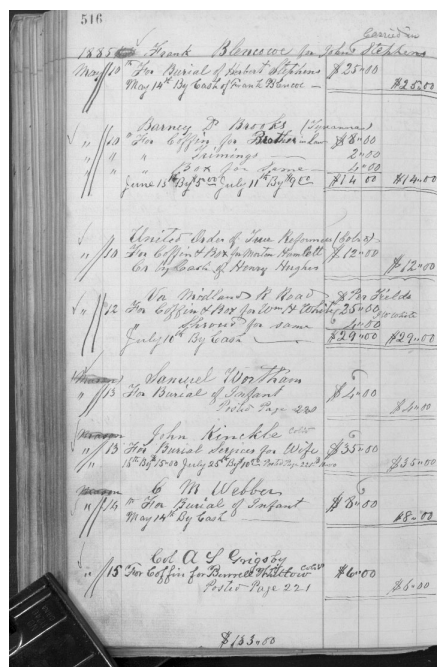 516
Carried in
1885 Frank Blencowe for John Stephens
May 10 For Burial of Herbert Stephens $25.00
May 14th By Cash of Frank Blencoe — $25.00
Barney P Brooks
" 10 " For Coffin for Brother in law $8.00
" " " Trimings — 2.00
" " " Box for same 4.00
June 15th By 5.00 July 11th By $9.00 $14.00 $14.00
United Order of True Reformers (Cold)
" 10 For Coffin & Box for Hamlett $12.00
Cr by Cash of Henry Hughes $12.00
Va Midland R Road $ Per Fields
" 12 For Coffin & Box for Wm H White 25.00
" Shroud for same 4.00
July 10th By Cash $29.00 $29.00
Samuel Wortham
" 13 For Burial of Infant $4.00
Posted Page 240 $4.00
John Kinckle Cold
" 13 For Burial Services for Wife $35.00
15th By 15.00 July 25th By $35.00
C M Webber
" 14 For Burial of Infant $8.00
May 14th By Cash $8.00
Col A S Grigsby
" 15 For Coffin for Burrell Whitlow Cold $6.00
Posted Page 221 $6.00
$133.00